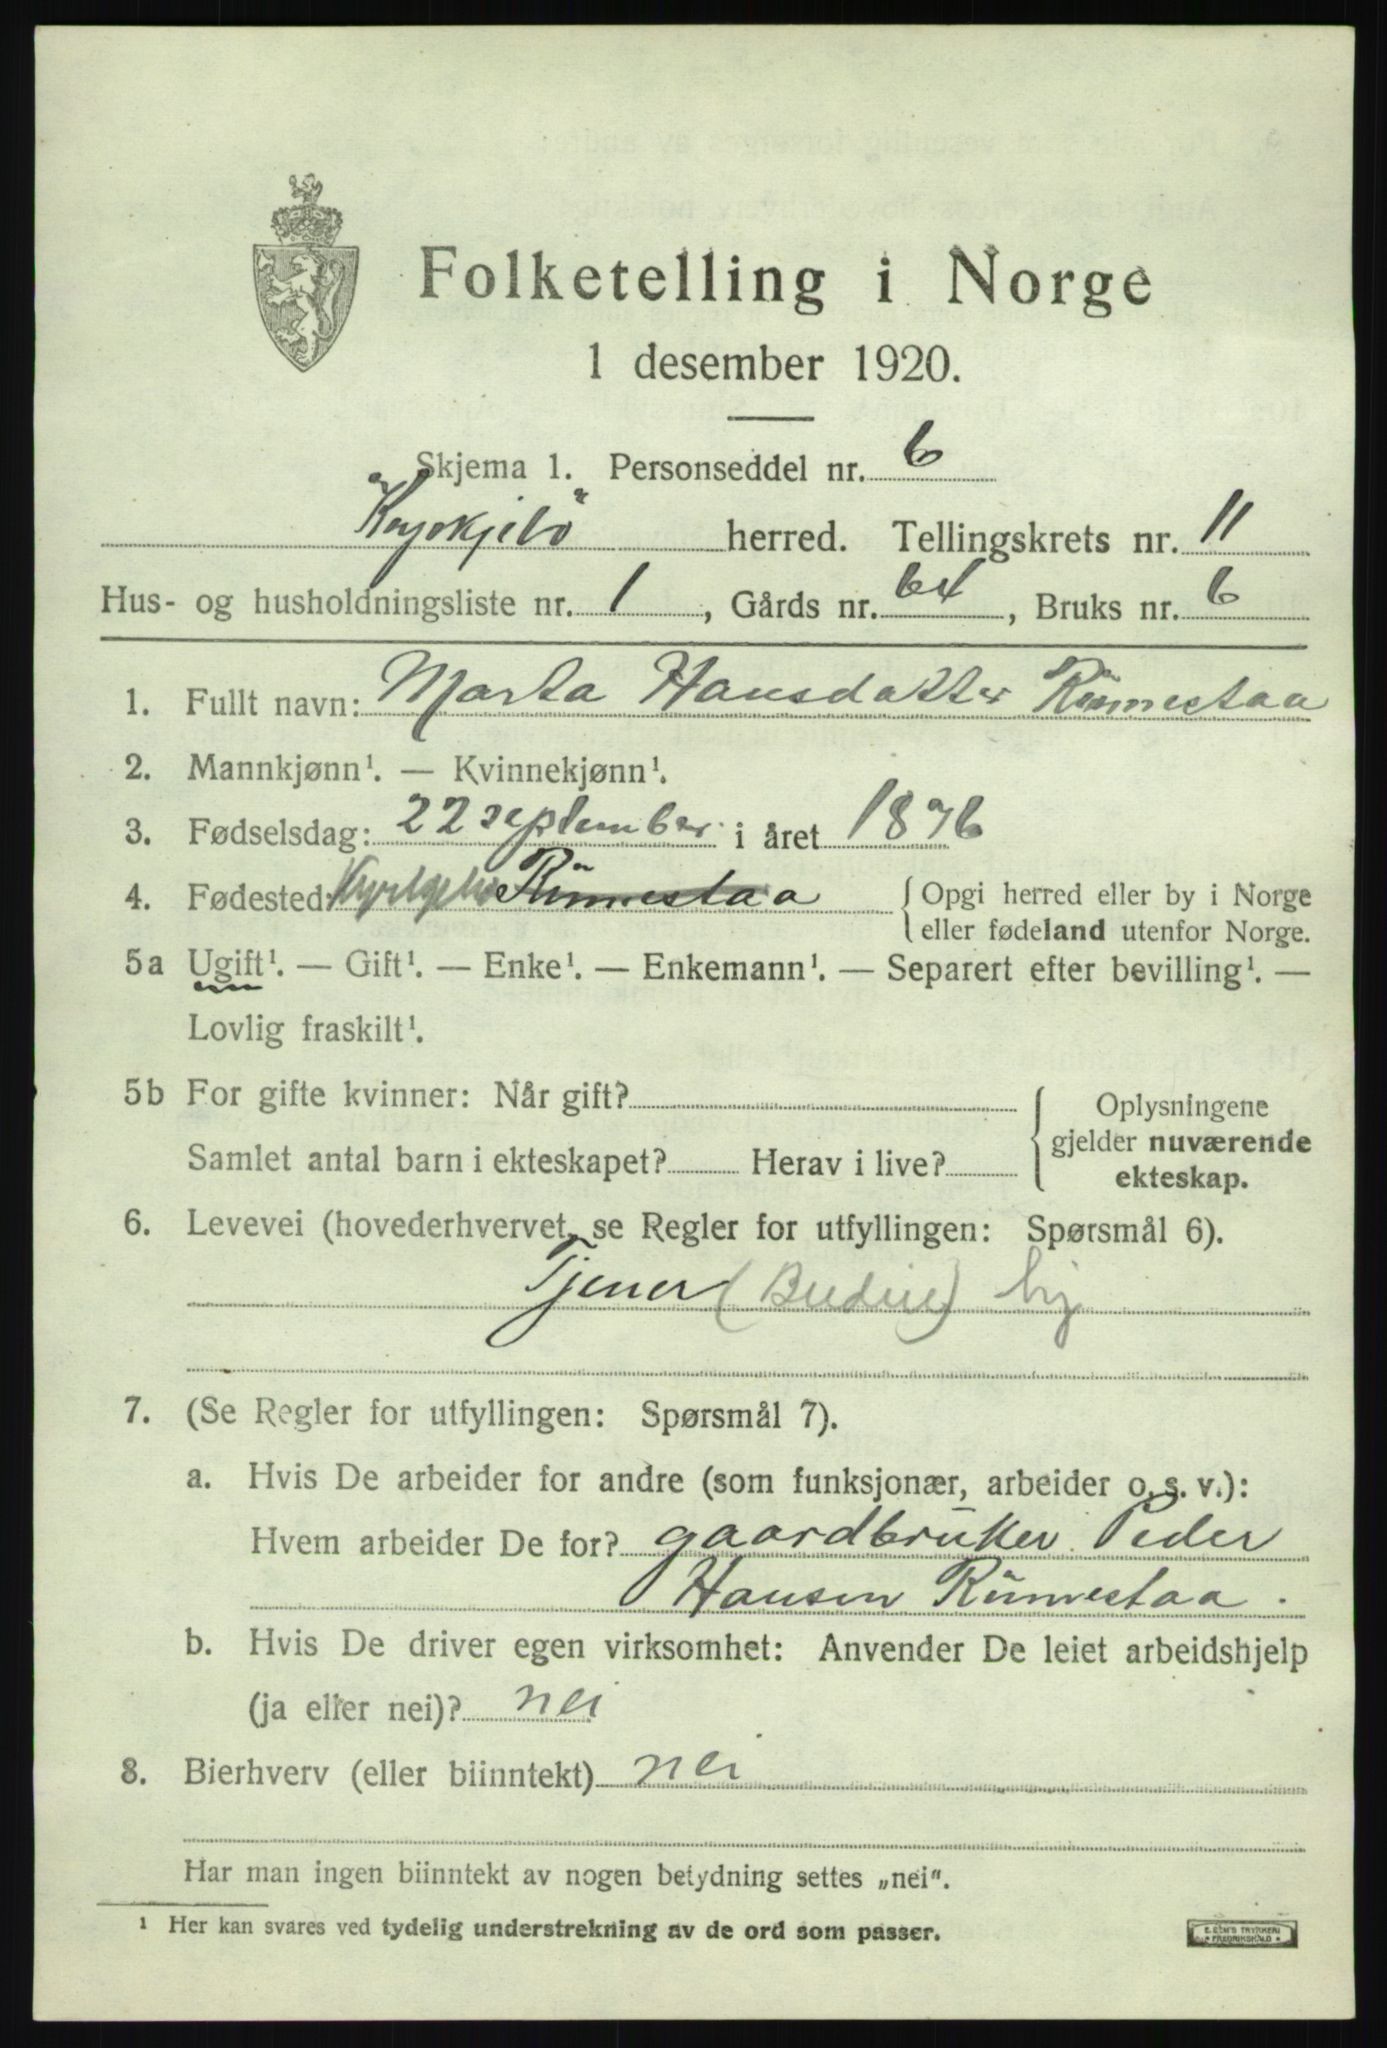 Folketelling i Norge
1 desember 1920.
Skjema 1. Personseddel nr. 6
Kyrkjebö herred. Tellingskrets nr. 11
Hus- og husholdningsliste nr. 1, Gårds nr. 64, Bruks nr. 6
1. Fullt navn: Marta Hansdatter Rünnestaa
2. Mannkjønn¹. — Kvinnekjønn¹.
3. Fødselsdag: 22 september i året 1876
4. Fødested Kyrkjebö Rünnestaa {Opgi herred eller by i Norge
eller fødeland utenfor Norge.
5a Ugift¹. — Gift¹. — Enke¹. — Enkemann¹. — Separert efter bevilling¹. —
Lovlig fraskilt¹.
5b For gifte kvinner: Når gift? {Oplysningene
gjelder nuværende
Samlet antal barn i ekteskapet? Herav i live?
ekteskap.
6. Levevei (hovederhvervet, se Regler for utfyllingen: Spørsmål 6).
Tjener (Budeie)
7. (Se Regler for utfyllingen: Spørsmål 7).
a. Hvis De arbeider for andre (som funksjonær, arbeider o. s. v.):
Hvem arbeider De for? gaardbruker Peder
Hansen Rünnestaa.
b. Hvis De driver egen virksomhet: Anvender De leiet arbeidshjelp
(ja eller nei)? nei
8. Bierhverv (eller biinntekt) nei
Har man ingen biinntekt av nogen betydning settes „nei“.
¹ Her kan svares ved tydelig understrekning av de ord som passer.